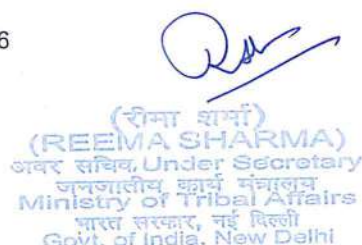 6
(रीमा शर्मा)
(REEMA SHARMA)
अवर सचिव, Under Secretary
जनजातीय कार्य मंत्रालय
Ministry of Tribal Affairs
भारत सरकार, नई दिल्ली
Govt. of India, New Delhi